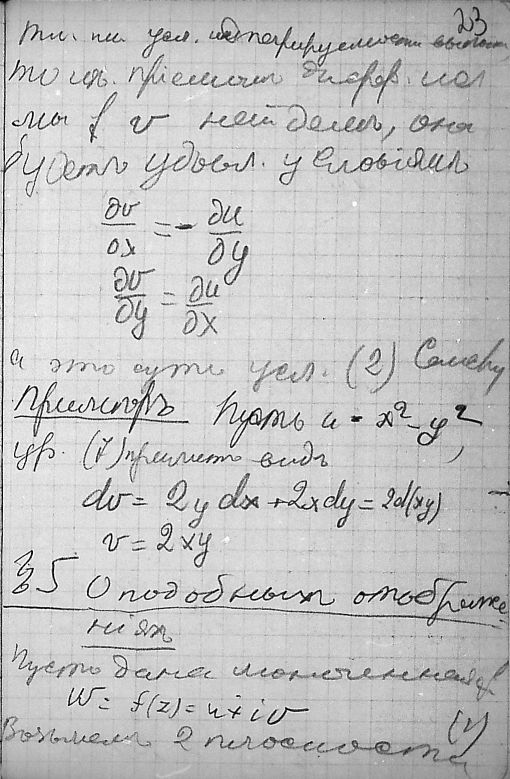 23
т.к. усл. интегрируемости выполн.
то
мы v найдемъ, она
будетъ удовл. условіямъ
∂v/∂x = - ∂u/∂y
∂v/∂y = ∂u/∂x
а это суть усл. (2)
Примѣръ Пусть u = x² - y²,
ур. (7) приметъ видъ
dv = 2y dx + 2x dy = 2d(xy)
v = 2xy
§5 О подобныхъ отображе
ніяхъ
Пусть дана моногенная
W = f(z) = u + iv (1)
Возьмемъ 2 плоскости